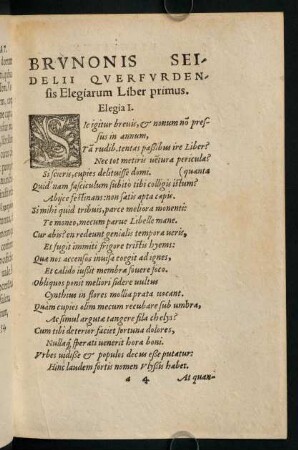 BRVNONIS SEI-
DELII QVERFVRDEN-
sis Elegiarum Liber primus.
Elegia I.
SIc igitur breuis, & nonum nō pres-
sus in annum,
Tā rudib. tentas passibus ire Liber?
Nec tot metiris uisura pericula?
Si scieris, cupies delituisse domi. (quanta
Quid uam fasciculum subito tibi colligis istum?
Abijce festinans: non satis apta capis.
Si mihi quid tribuis, parce meliora monenti:
Te moneo, mecum parue Libelle mane.
Cur abis? en redeunt genialis tempora ueris,
Et fugit immiti frigore tristis hyems:
Quæ nos accensos inuisa coegit ad ignes,
Et calido iussit membra fouere foco.
Obliquos ponit meliori sidere uultus
Cynthius: in flores mollia prata uocant.
Quàm cupies olim mecum recubare sub umbra,
Ac simul argutæ tangere fila chelys?
Cum tibi deterior faciet fortuna dolores,
Nullaq́; sperati uenerit hora boni.
Vrbes uidisse & populos decus esse putatur:
Hinc laudem fortis nomen Vlyssis habet.
a 4 At quan-